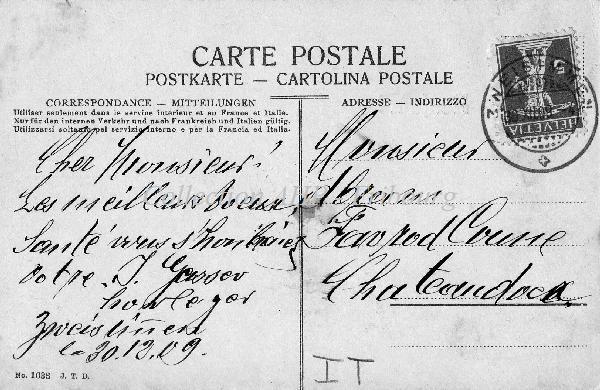 CARTE POSTALE
POSTKARTE — CARTOLINA POSTALE
CORRESPONDANCE — MITTEILUNGEN
Utiliser seulement dans le service intérieur et au France et Italie.
Nur für den internen Verkehr und nach Frankreich und Italien gültig.
Utilizzarsi soltanto pel servizio interno e per la Francia ed Italia.
Cher Monsieur!
Les meilleurs voeux,
Santé vous
votre J. Gasser
horloger
Zweisimmen
le 30.12.09.
No. 1038 J. T. D.
ADRESSE — INDIRIZZO
HELVETIA
Monsieur
Favrod Coune
Chateaudoex
IT
Collection